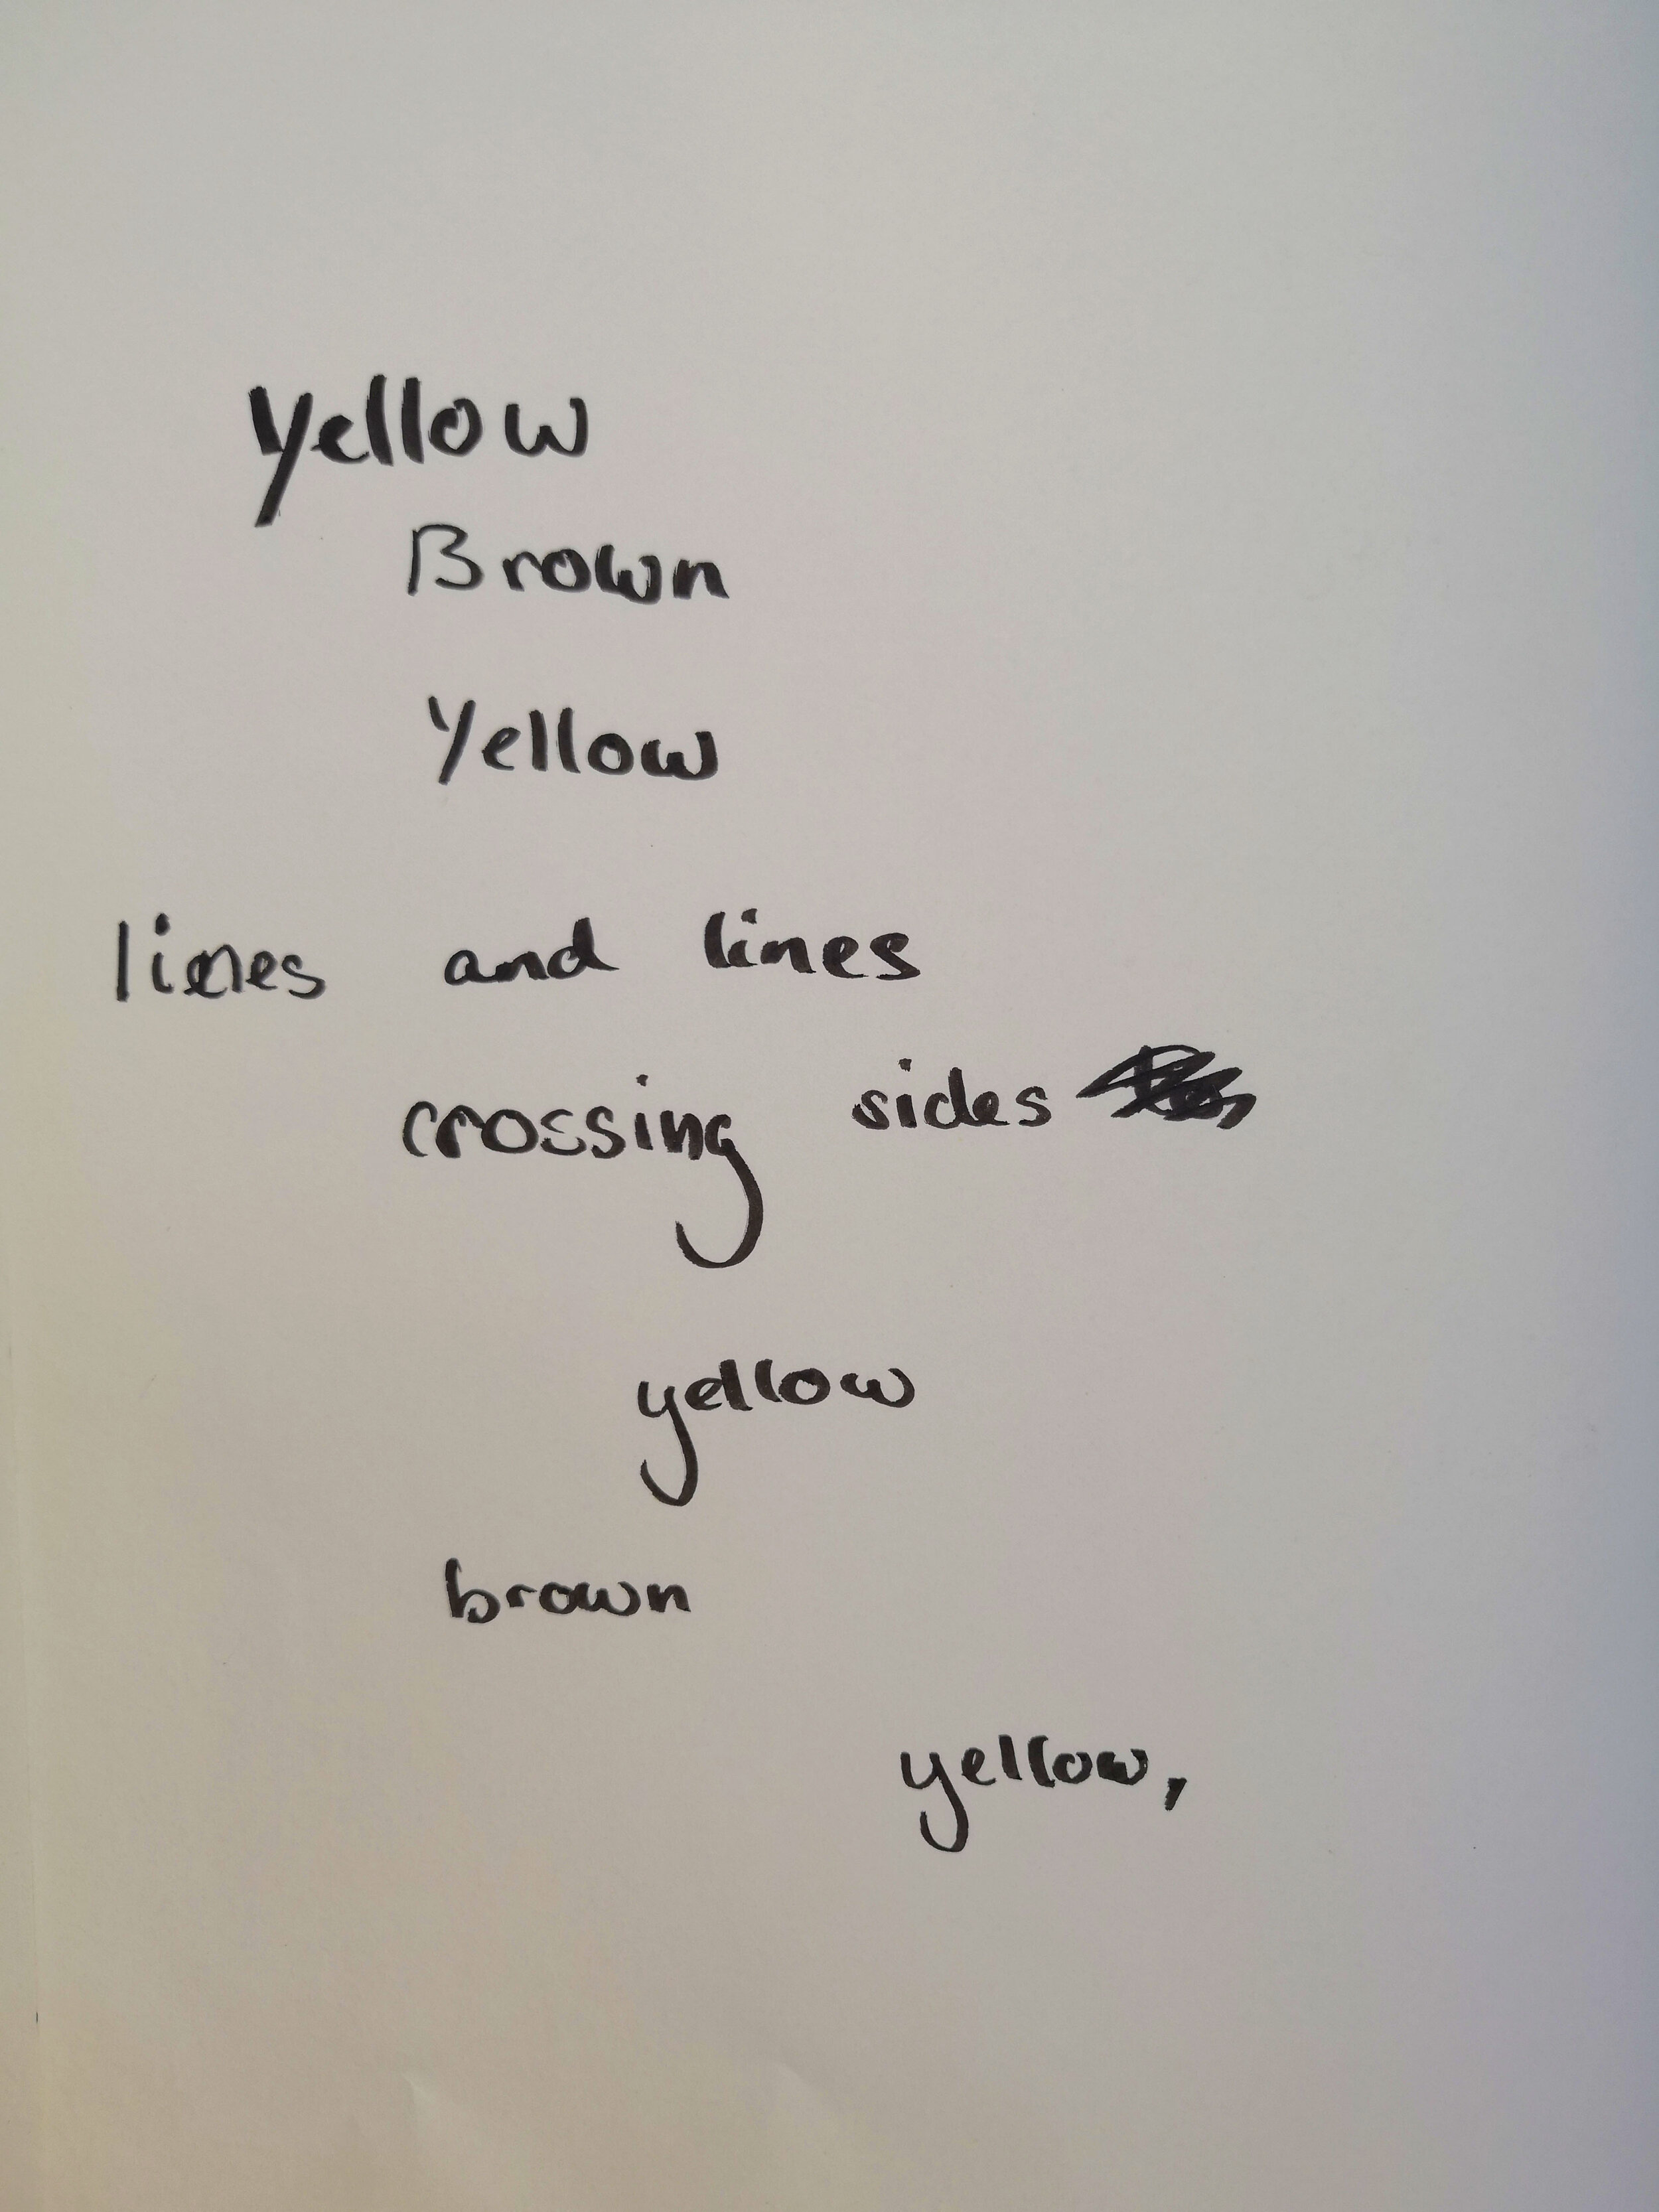 Yellow
Brown
Yellow
lines and lines
crossing sides
yellow
brown
yellow,